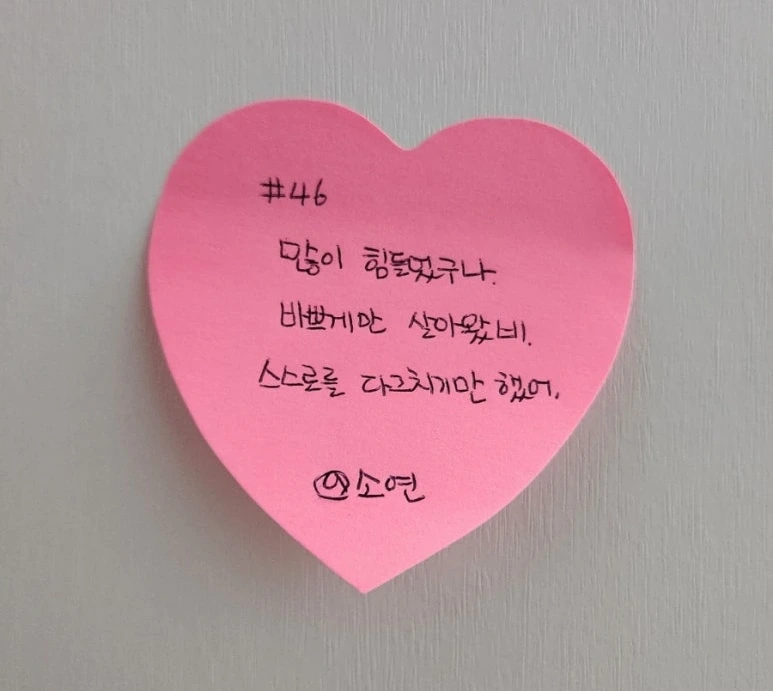 #46
많이 힘들었구나.
바쁘게만 살아왔네.
스스로를 다그치기만 했어.
@소연